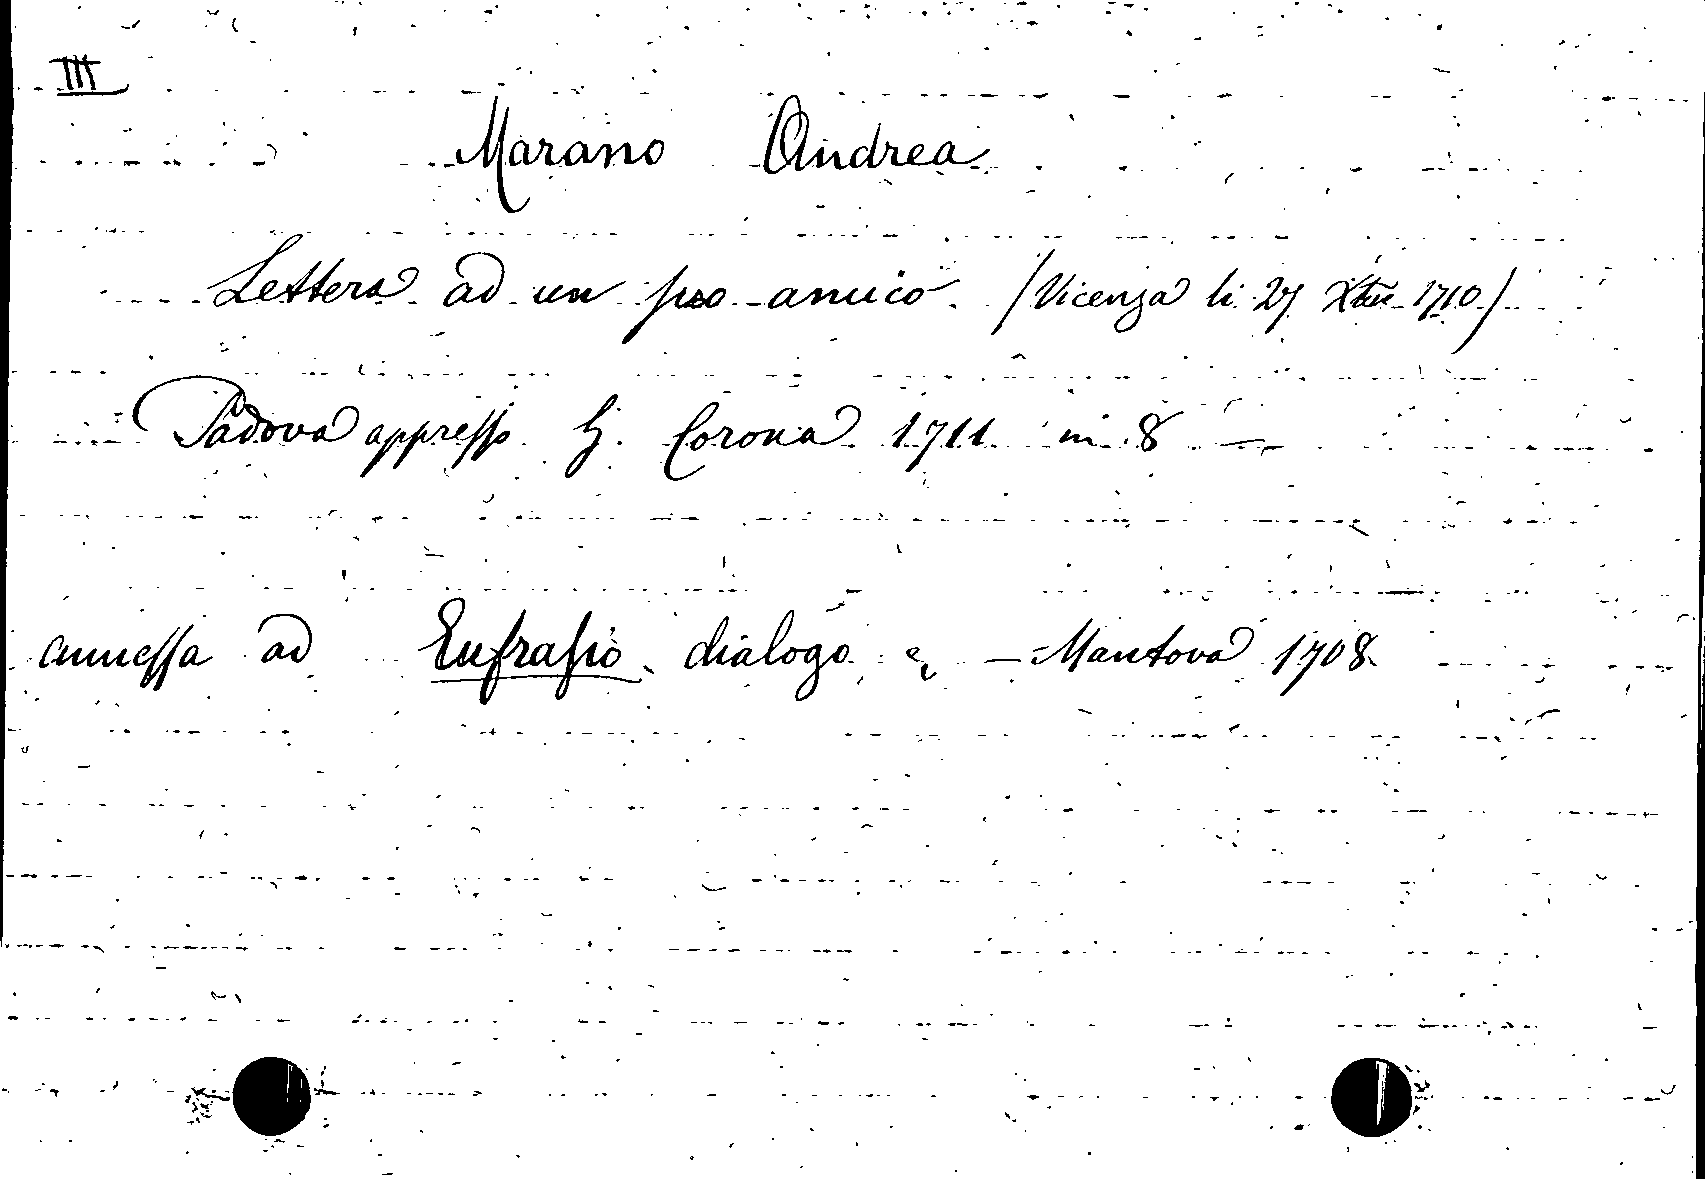 III
Marano Andrea
Lettera ad un suo amico (Vicenza li 27 Xbre 1710)
Padova appresso G. Corona 1711 in 8 —
annessa ad Eufrasio dialogo &c — Mantova 1708